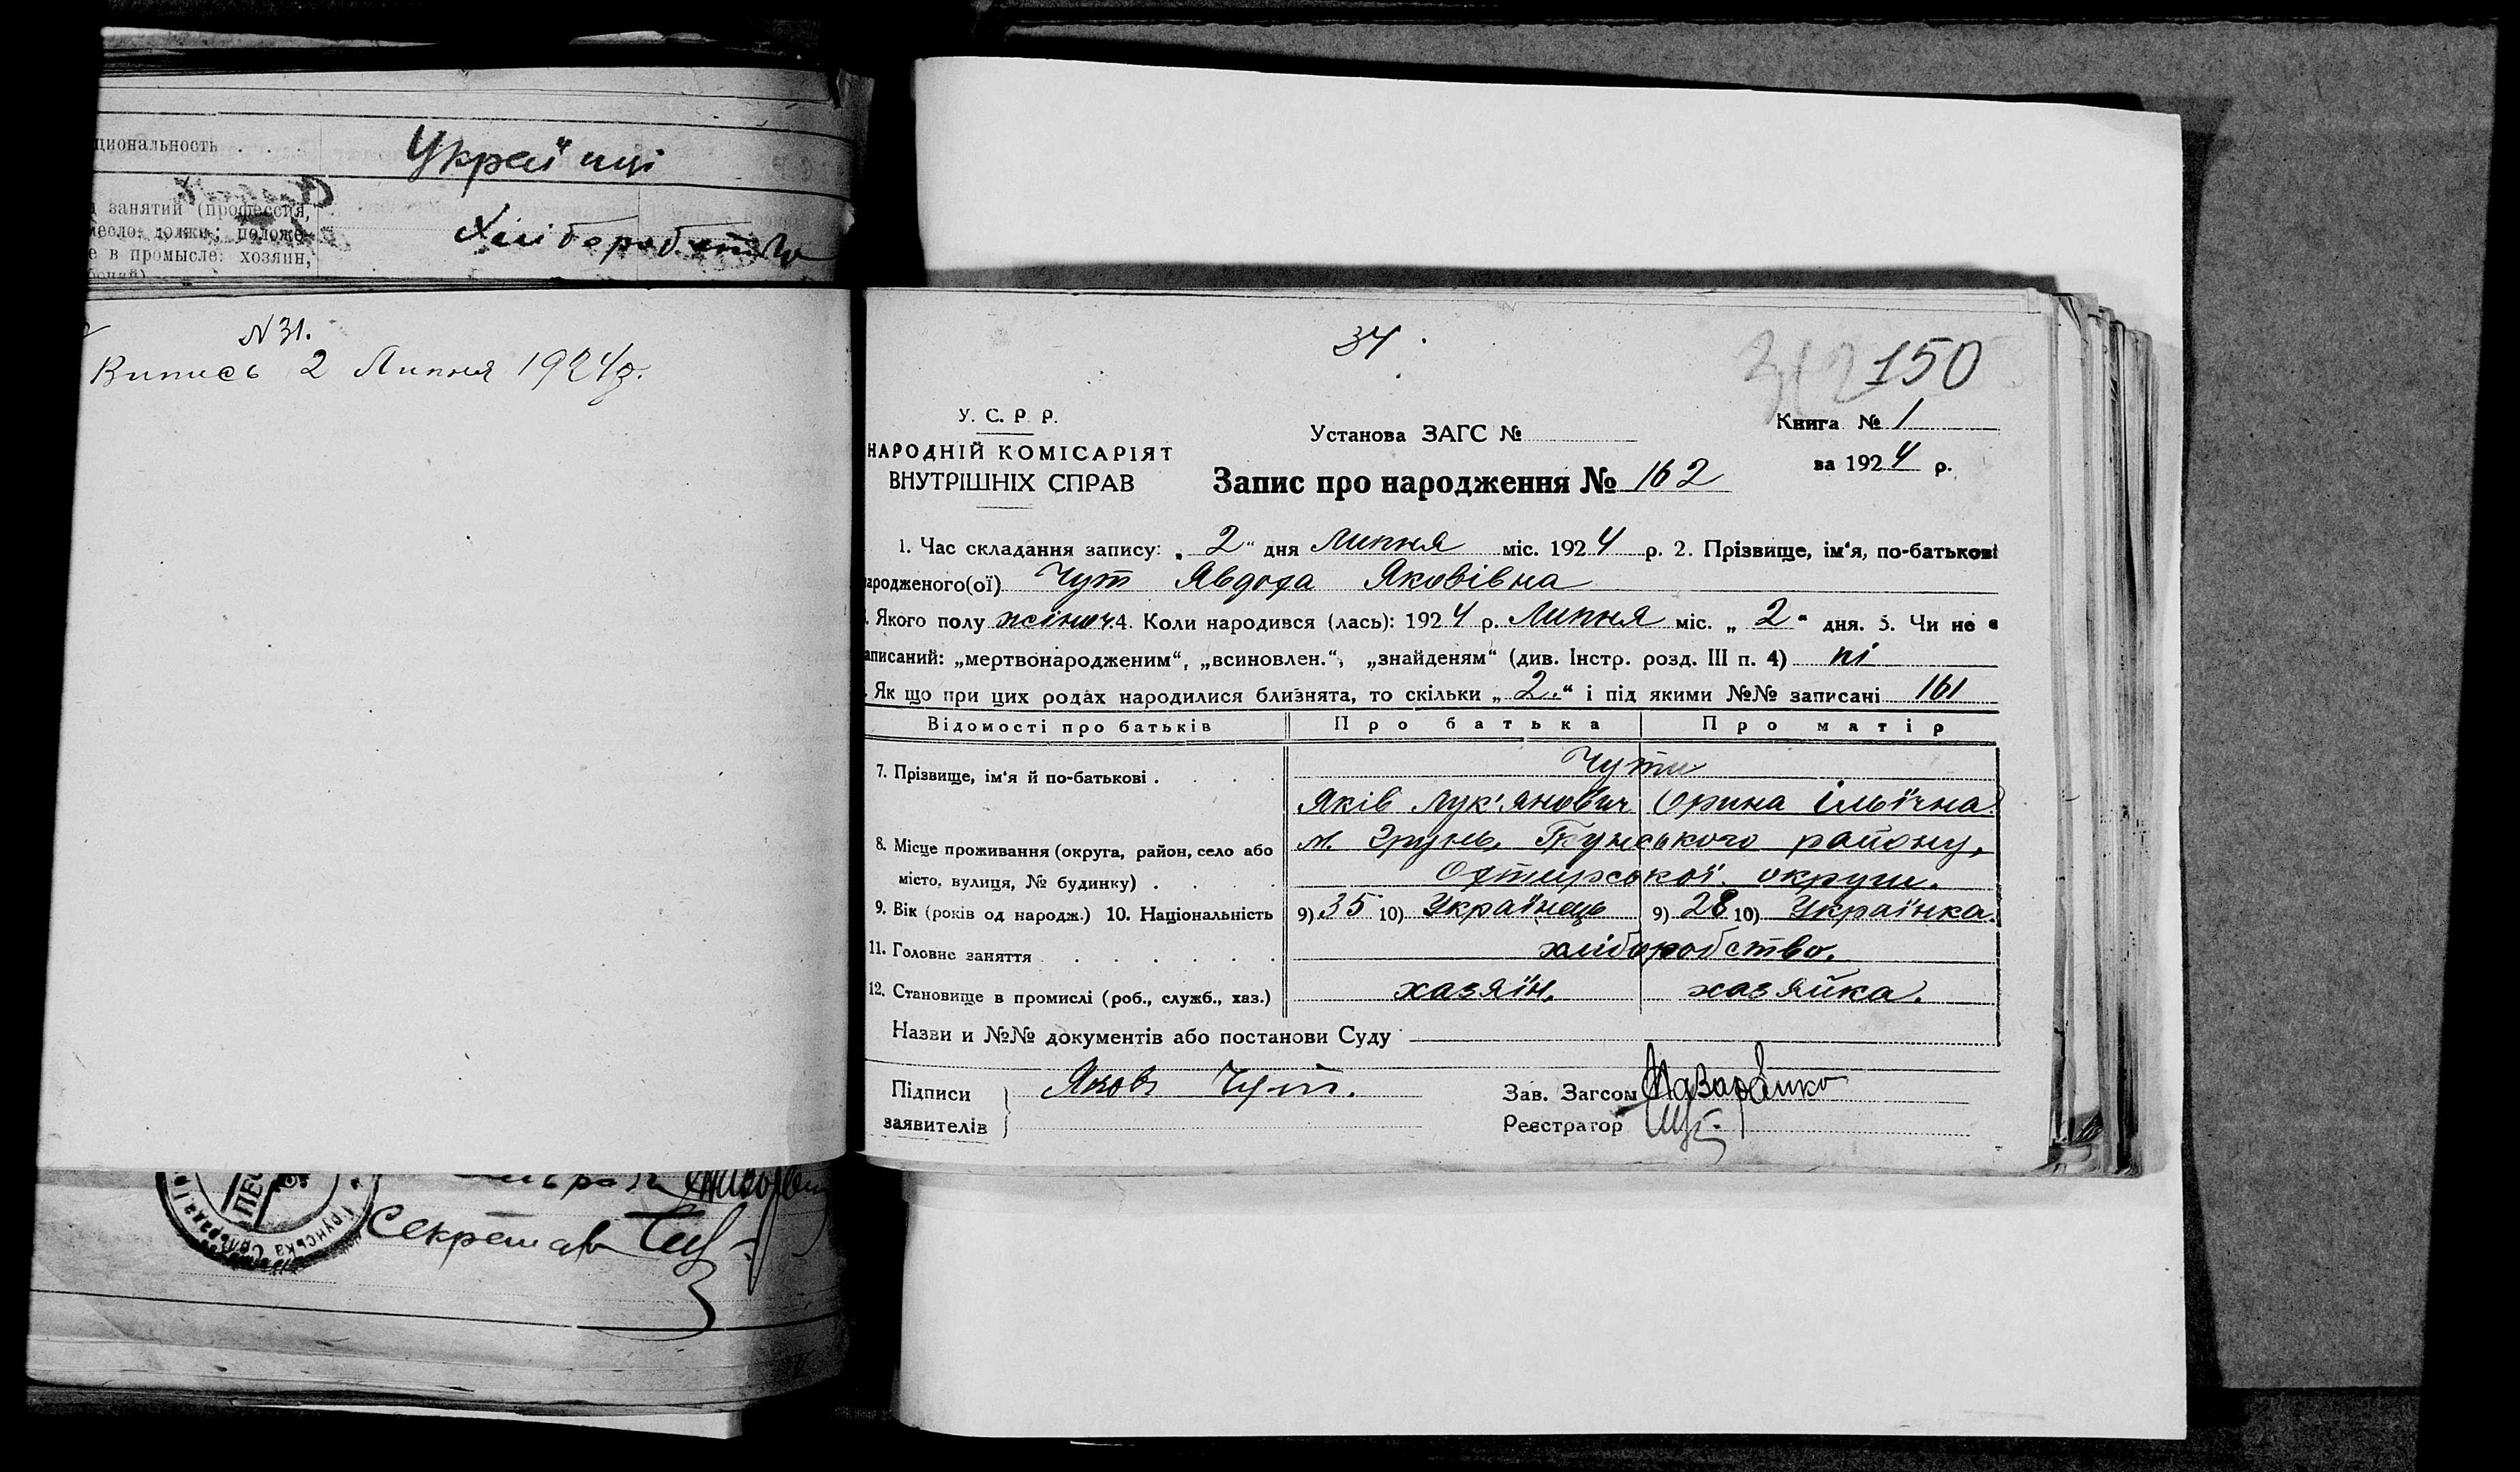 циональность . . . Українці
занятий (профессия, Хліборобство
месло; должн.; положе-
е в промысле: хозяин,
N 31.
Випись 2 Липня 1924 р.
34.
150
У. С. Р. Р.
НАРОДНІЙ КОМІСАРІЯТ
ВНУТРІШНІХ СПРАВ
Установа ЗАГС №
Книга № 1
за 1924 р.
Запис про народження № 162
1. Час складання запису: „2“ дня Липня міс. 1924 р. 2. Прізвище, ім‘я, по-батькові
народженого(ої) Чут Явдоха Яковівна
3. Якого полу жіноч. 4. Коли народився (лась): 1924 р. Липня міс. „2“ дня. 5. Чи не є
записаний: „мертвонародженим“, „всиновлен.“, „знайденям“ (див. Інстр. розд. III п. 4) ні
Як що при цих родах народилися близнята, то скільки „2.“ і під якими №№ записані 161
Відомості про батьків Про батька Про матір
7. Прізвище, ім‘я й по-батькові . . . . Чути
Яків Лук'янович Орина Ільїчна
8. Місце проживання (округа, район, село або м. Грунь, Грунського району,
місто, вулиця, № будинку) . . . Охтирської округи.
9. Вік (років од народж.) 10. Національність 9) 35 10) Українець 9) 28 10) Українка.
11. Головне заняття . . . . . . хліборобство.
12. Становище в промислі (роб., служб., хаз.) хазяїн. хазяйка.
Назви и №№ документів або постанови Суду
Підписи Яков Чут.
заявителів
Зав. Загсом Назаренко
Реєстратор
Секретар
Грунська Сільрада